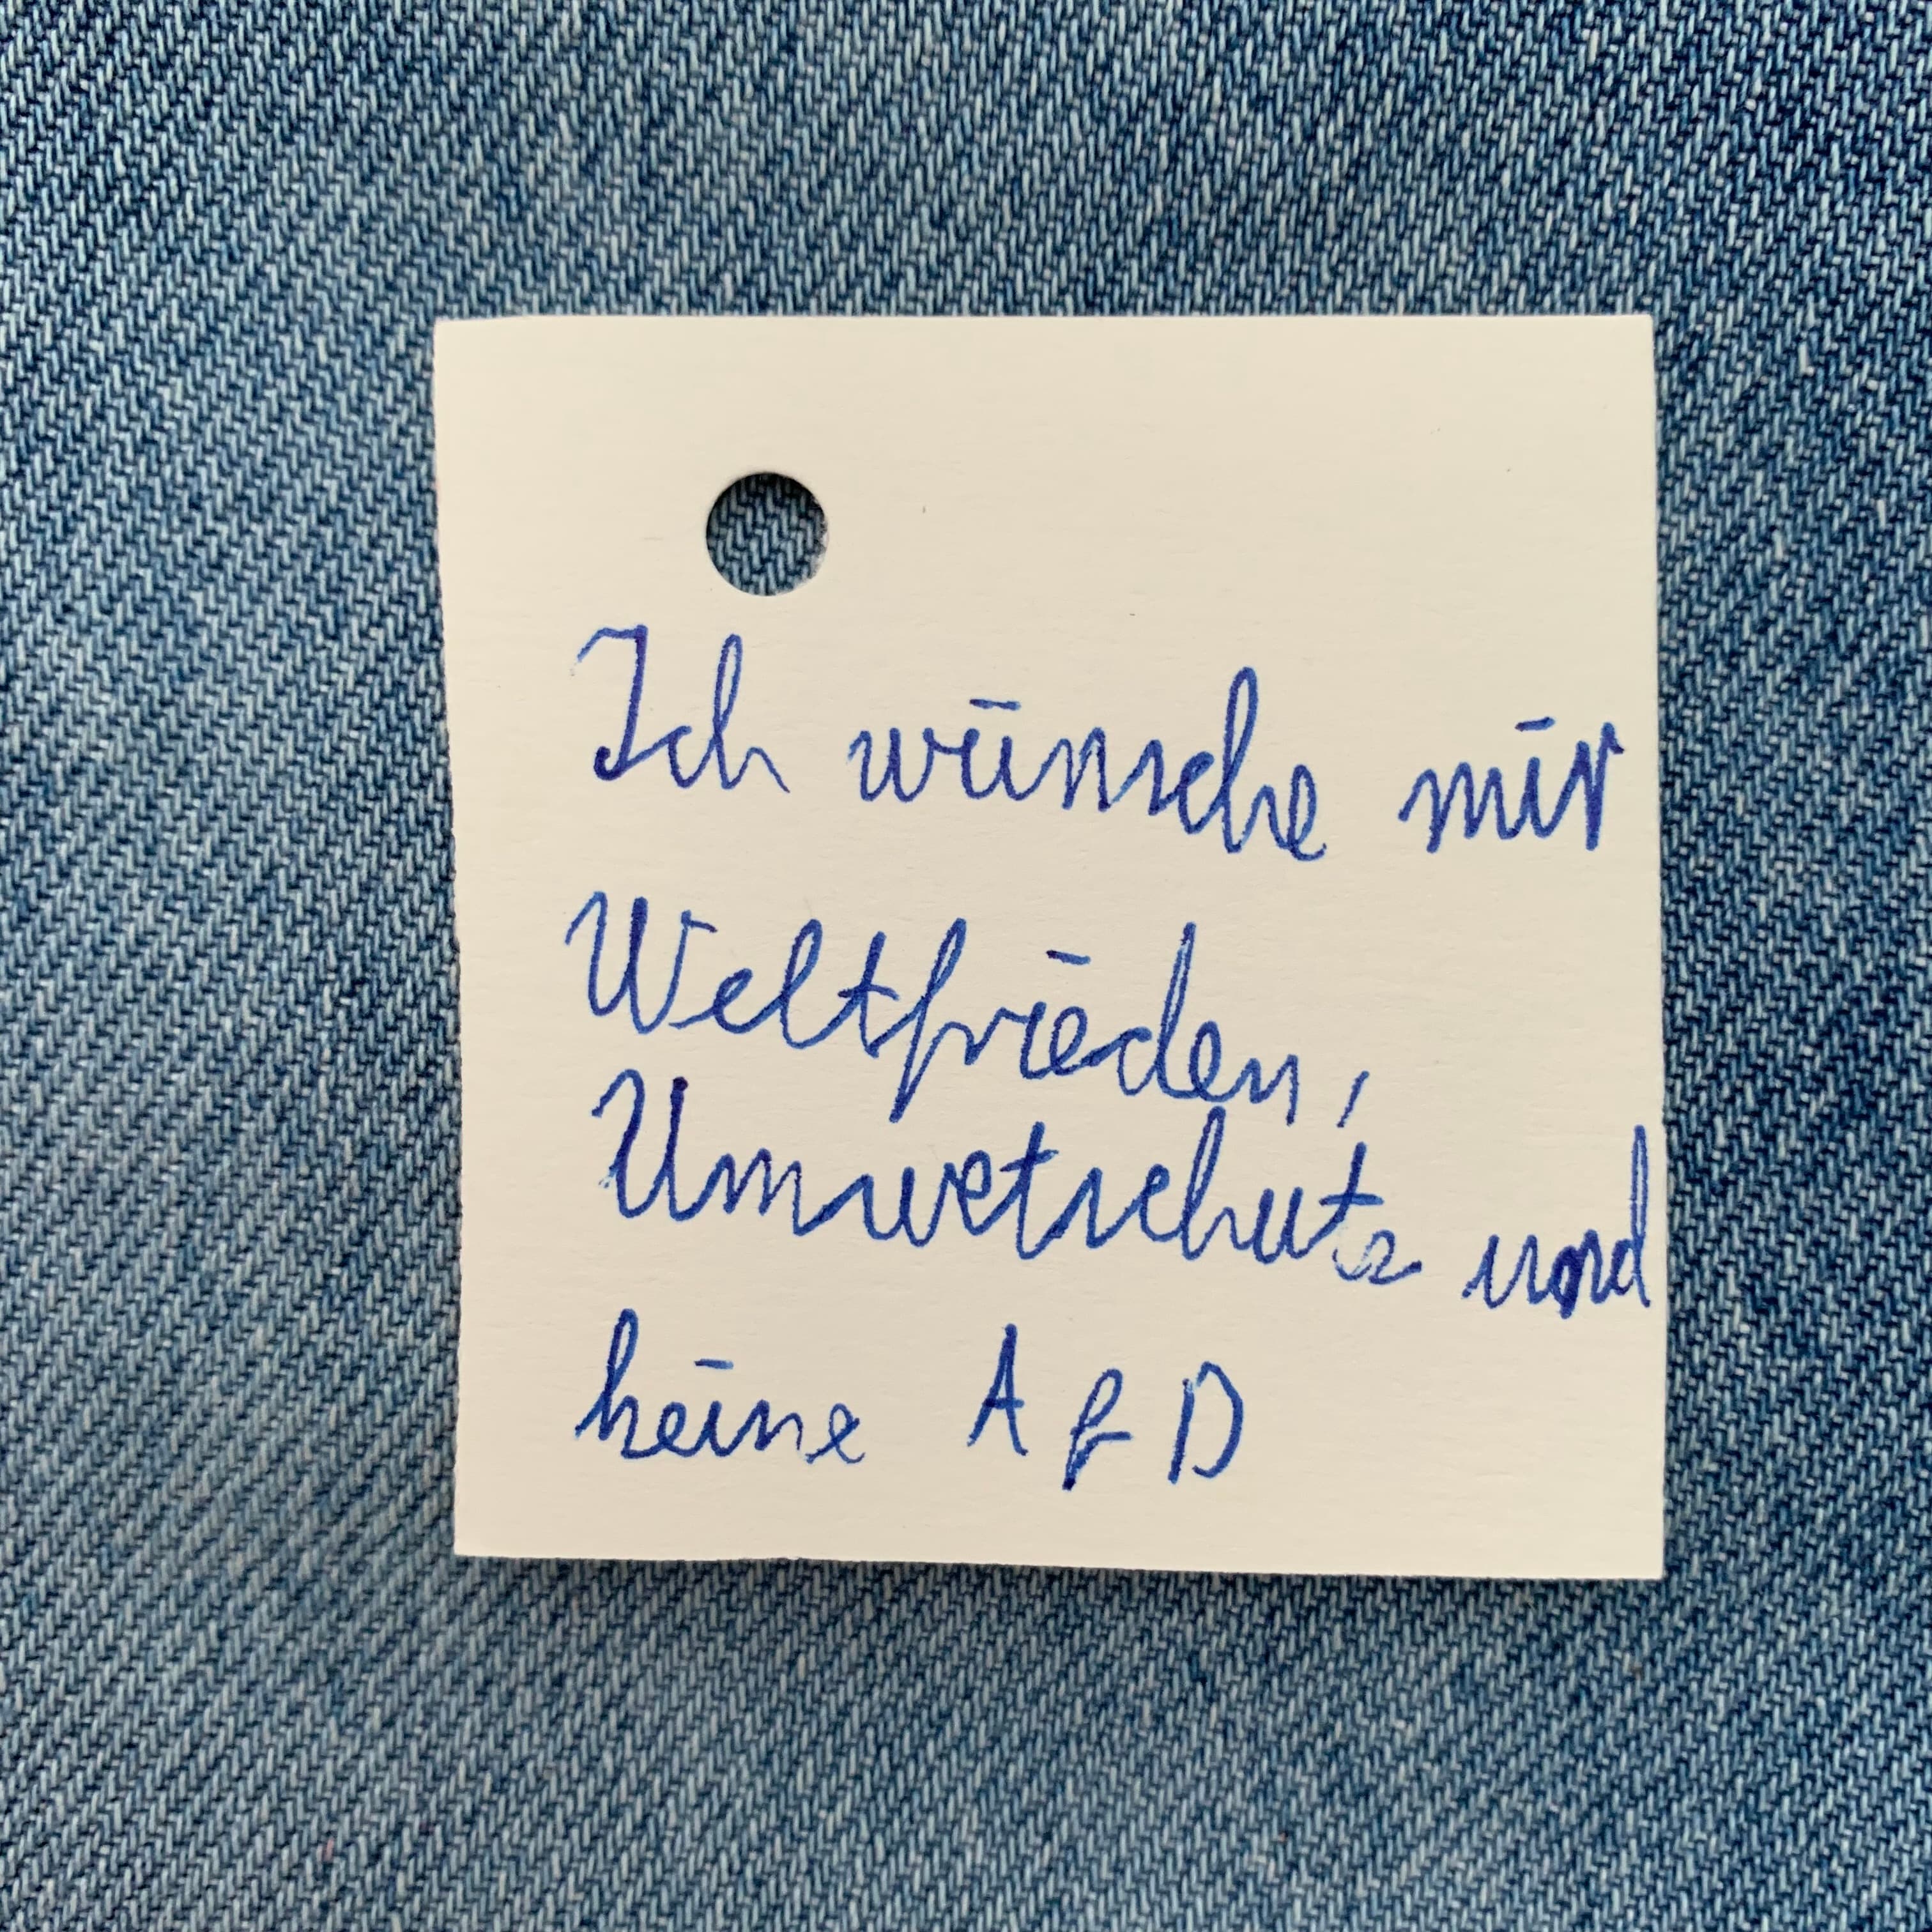 Ich wünsche mir
Weltfrieden,
Umwetschutz und
keine AfD